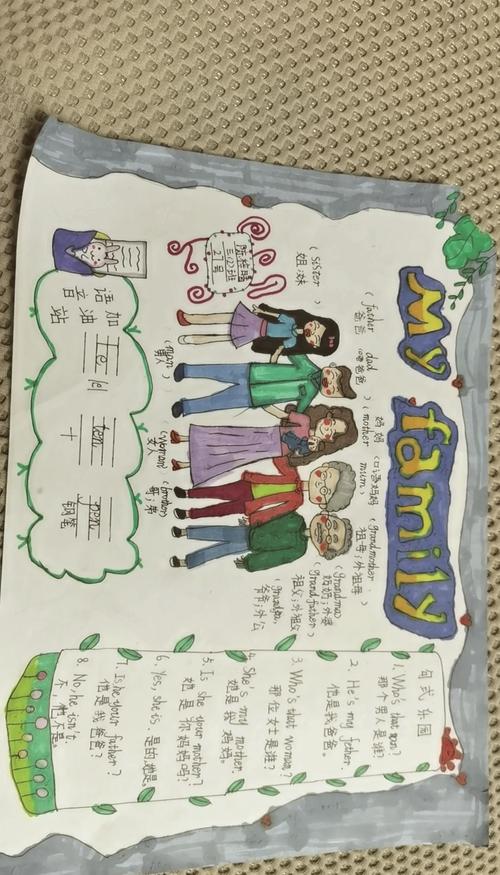 My family
(sister
姐;妹
)
(father dad
爸爸 口语 爸爸
)
妈妈 (口语)妈妈
(mother mum
)
(grandmother
祖母;外祖母
)
(grandma
奶奶;外婆
)
(grandfather
祖父;外祖父
)
(grandpa
爷爷;外公
(man
男人
)
(woman)
女人
(brother)
哥;弟
三(2)班
21号
语音加油站
/e/ [e]
ten
十
pen
钢笔
句式乐园
1. Who's that man?
那个男人是谁?
2. He's my father.
他是我爸爸。
3. Who's that woman?
那位女士是谁?
4. She's my mother.
她是我妈妈。
5. Is she your mother?
她是你妈妈吗?
6. Yes, she is. 是的,她是。
7. Is he your father?
他是我爸爸?
8. No, he isn't.
不,他不是。